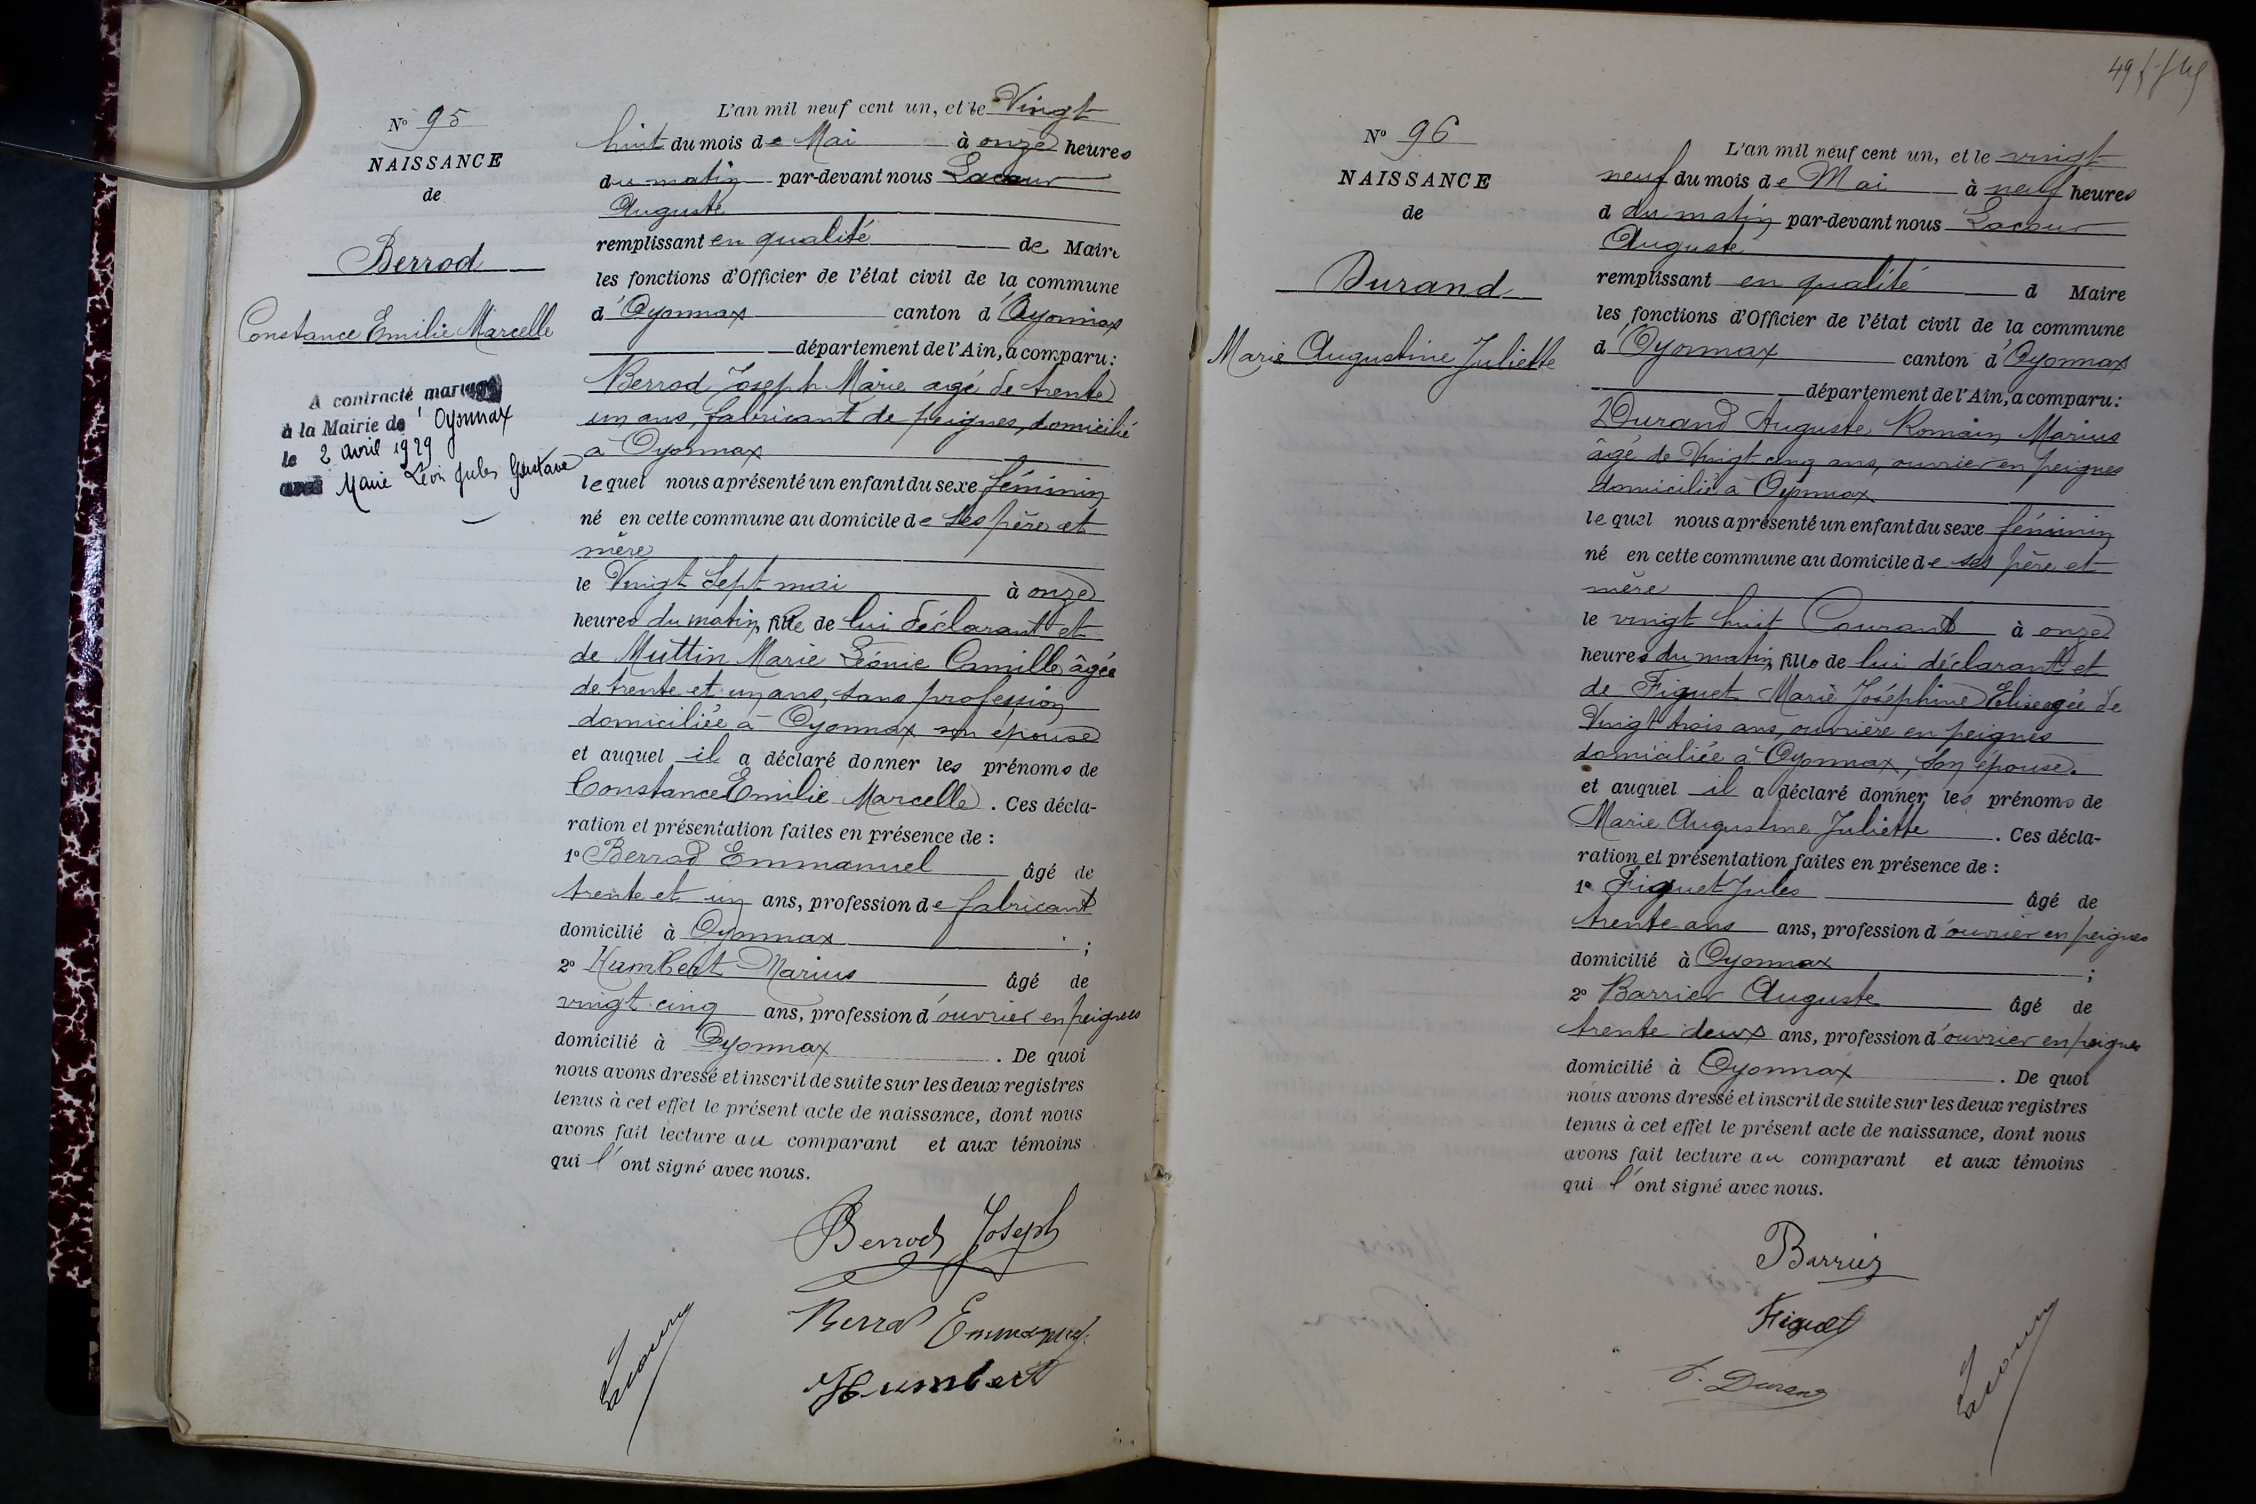 N° 95
NAISSANCE
de
Berrod
Constance Emilie Marcelle
A contracté mariage
à la Mairie de d'Oyonnax
le 2 avril 1929
avec Marie Léon Jules Gustave
L'an mil neuf cent un, et le Vingt
huit du mois de Mai à onze heures
du matin par-devant nous Lacour
Auguste
remplissant en qualité de Maire
les fonctions d'Officier de l'état civil de la commune
d'Oyonnax canton d'Oyonnax
département de l'Ain, a comparu :
Berrod Joseph Marie agé de trente
un ans, fabricant de peignes, domicilié
à Oyonnax
lequel nous a présenté un enfant du sexe féminin
né en cette commune au domicile de ses père et
mère
le Vingt Sept mai à onze
heures du matin, fille de lui déclarant et
de Muttin Marie Léonie Camille âgée
de trente et un ans, sans profession
domiciliée à Oyonnax son épouse
et auquel il a déclaré donner les prénoms de
Constance Emilie Marcelle. Ces décla-
ration et présentation faites en présence de :
1° Berrod Emmanuel âgé de
trente et un ans, profession de fabricant
domicilié à Oyonnax ;
2° Humbert Marius âgé de
vingt cinq ans, profession d'ouvrier en peignes
domicilié à Oyonnax . De quoi
nous avons dressé et inscrit de suite sur les deux registres
tenus à cet effet le présent acte de naissance, dont nous
avons fait lecture au comparant et aux témoins
qui l'ont signé avec nous.
Berrod Joseph
Berrod Emmanuel
Humbert
Lacour
49
N° 96
NAISSANCE
de
Durand
Marie Augustine Juliette
L'an mil neuf cent un, et le vingt
neuf du mois de Mai à neuf heures
d du matin par-devant nous Lacour
Auguste
remplissant en qualité d Maire
les fonctions d'Officier de l'état civil de la commune
d'Oyonnax canton d'Oyonnax
département de l'Ain, a comparu :
Durand Auguste Romain Marius
âgé de Vingt cinq ans, ouvrier en peignes
domicilié à Oyonnax
lequel nous a présenté un enfant du sexe féminin
né en cette commune au domicile de ses père et
mère
le vingt huit Courant à onze
heures du matin, fille de lui déclarant et
de Figuet Marie Joséphine Elise agée de
Vingt trois ans, ouvrière en peignes
domiciliée à Oyonnax, son épouse.
et auquel il a déclaré donner les prénoms de
Marie Augustine Juliette . Ces décla-
ration et présentation faites en présence de :
1° Figuet Jules âgé de
trente ans ans, profession d'ouvrier en peignes
domicilié à Oyonnax ;
2° Barrier Auguste âgé de
trente deux ans, profession d'ouvrier en peignes
domicilié à Oyonnax . De quoi
nous avons dressé et inscrit de suite sur les deux registres
tenus à cet effet le présent acte de naissance, dont nous
avons fait lecture au comparant et aux témoins
qui l'ont signé avec nous.
Barrier
Figuet
Durand
Lacour